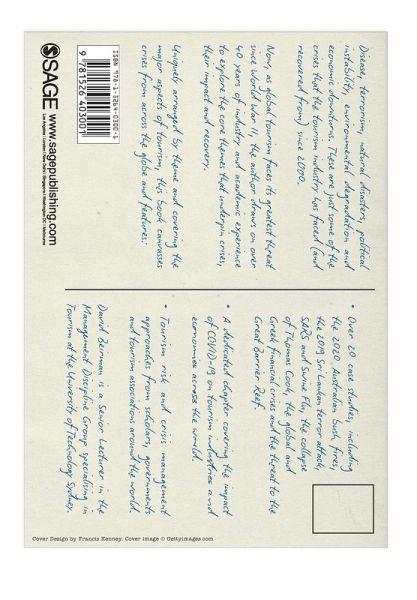 Disease, terrorism, natural disasters, political
instability, environmental degradation and
economic downturns. These are just some of the
crises that the tourism industry has faced (and
recovered from) since 2000.
Now, as global tourism faces its greatest threat
since World War II, the author draws on over
40 years of industry and academic experience
to explore the core themes that underpin crises,
their impact and recovery.
Uniquely arranged by theme and covering the
major aspects of tourism, this book canvasses
crises from across the globe and features:
• Over 20 case studies, including
the 2020 Australian bush fires,
the 2019 Sri Lankan terror attack,
SARS and Swine Flu, the collapse
of Thomas Cook, the global and
Greek financial crises and the threat to the
Great Barrier Reef.
• A dedicated chapter covering the impact
of COVID-19 on tourism industries and
economies across the world.
• Tourism risk and crisis management
approaches from scholars, governments
and tourism associations around the world.
David Beirman is a Senior Lecturer in the
Management Discipline Group specialising in
Tourism at the University of Technology Sydney.
ISBN 978-1-5264-0300-1
9 781526 403001
SAGE www.sagepublishing.com
Cover Design by Francis Kenney. Cover image © Gettyimages.com